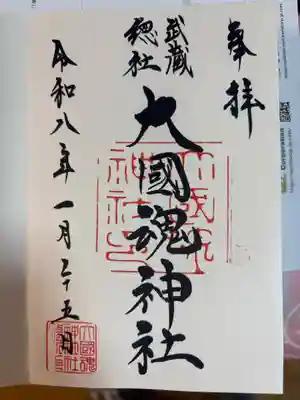 奉拝
武蔵
總社
大國魂神社
令和八年一月二十五日
大國魂
神社印